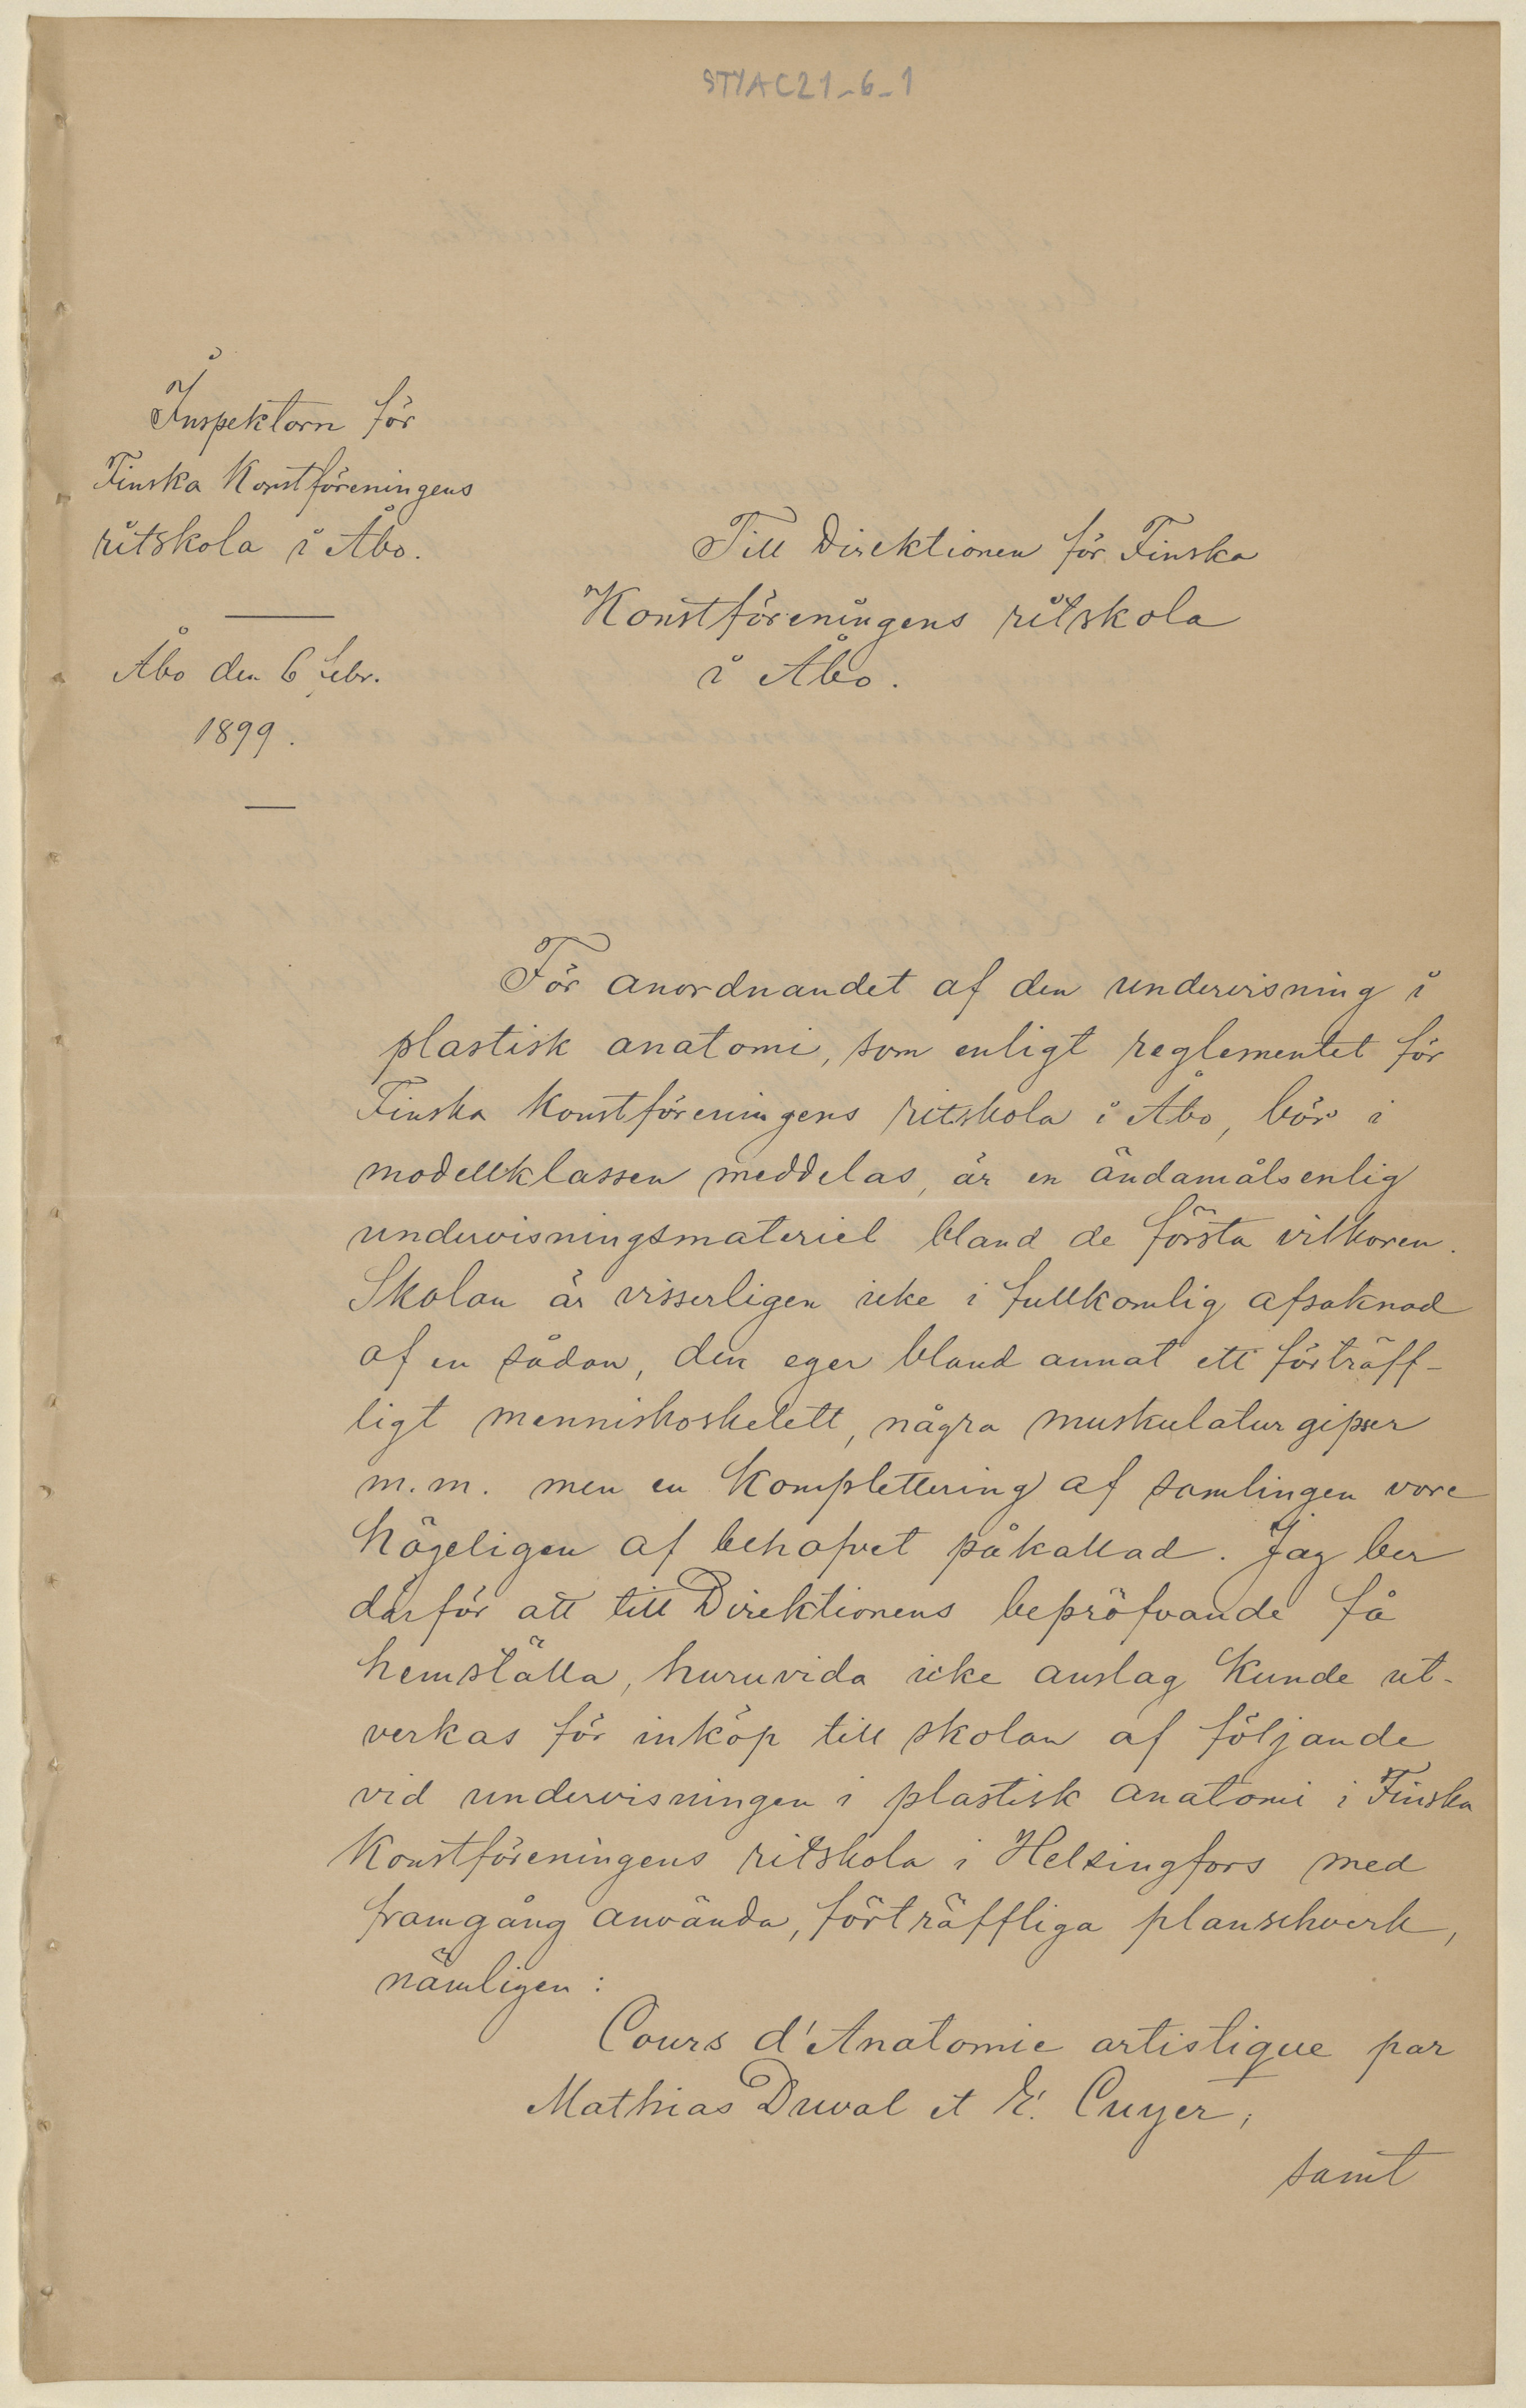 STYAC21-6-1
Inspektorn för
Finska Konstföreningens
ritskola i Åbo.
Åbo den 6 febr.
1899.
Till Direktionen för Finska
Konstföreningens ritskola
i Åbo.
För anordnandet af den undervisning i
plastisk anatomi, som enligt reglementet för
Finska Konstföreningens ritskola i Åbo, bör i
modellklassen meddelas, är en ändamålsenlig
undervisningsmateriel bland de första vilkoren.
Skolan är visserligen icke i fullkomlig afsaknad
af en sådan, den eger bland annat ett förträff-
ligt menniskoskelett, några muskulaturgipser
m.m. men en komplettering af samlingen vore
högeligen af behofvet påkallad. Jag ber
därför att till Direktionens bepröfvande få
hemställa, huruvida icke anslag kunde ut-
verkas för inköp till skolan af följande
vid undervisningen i plastisk anatomi i Finska
Konstföreningens ritskola i Helsingfors med
framgång använda, förträffliga planschverk,
nämligen:
Cours d'Anatomie artistique par
Mathias Duval et É. Cuyer;
samt